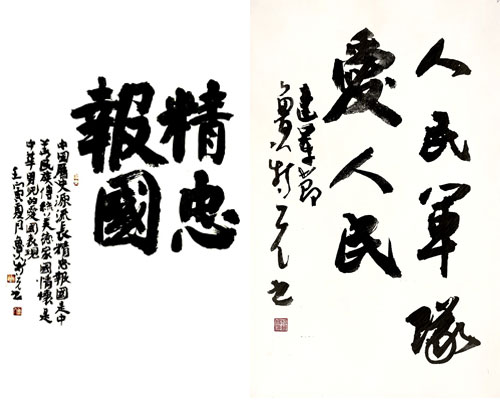 精忠
報國
中國曆史源流長精忠報國是中
華民族傳統美德家國情懷是
中華男兒的愛國表現
壬寅夏月
人民軍隊
愛人民
建軍節